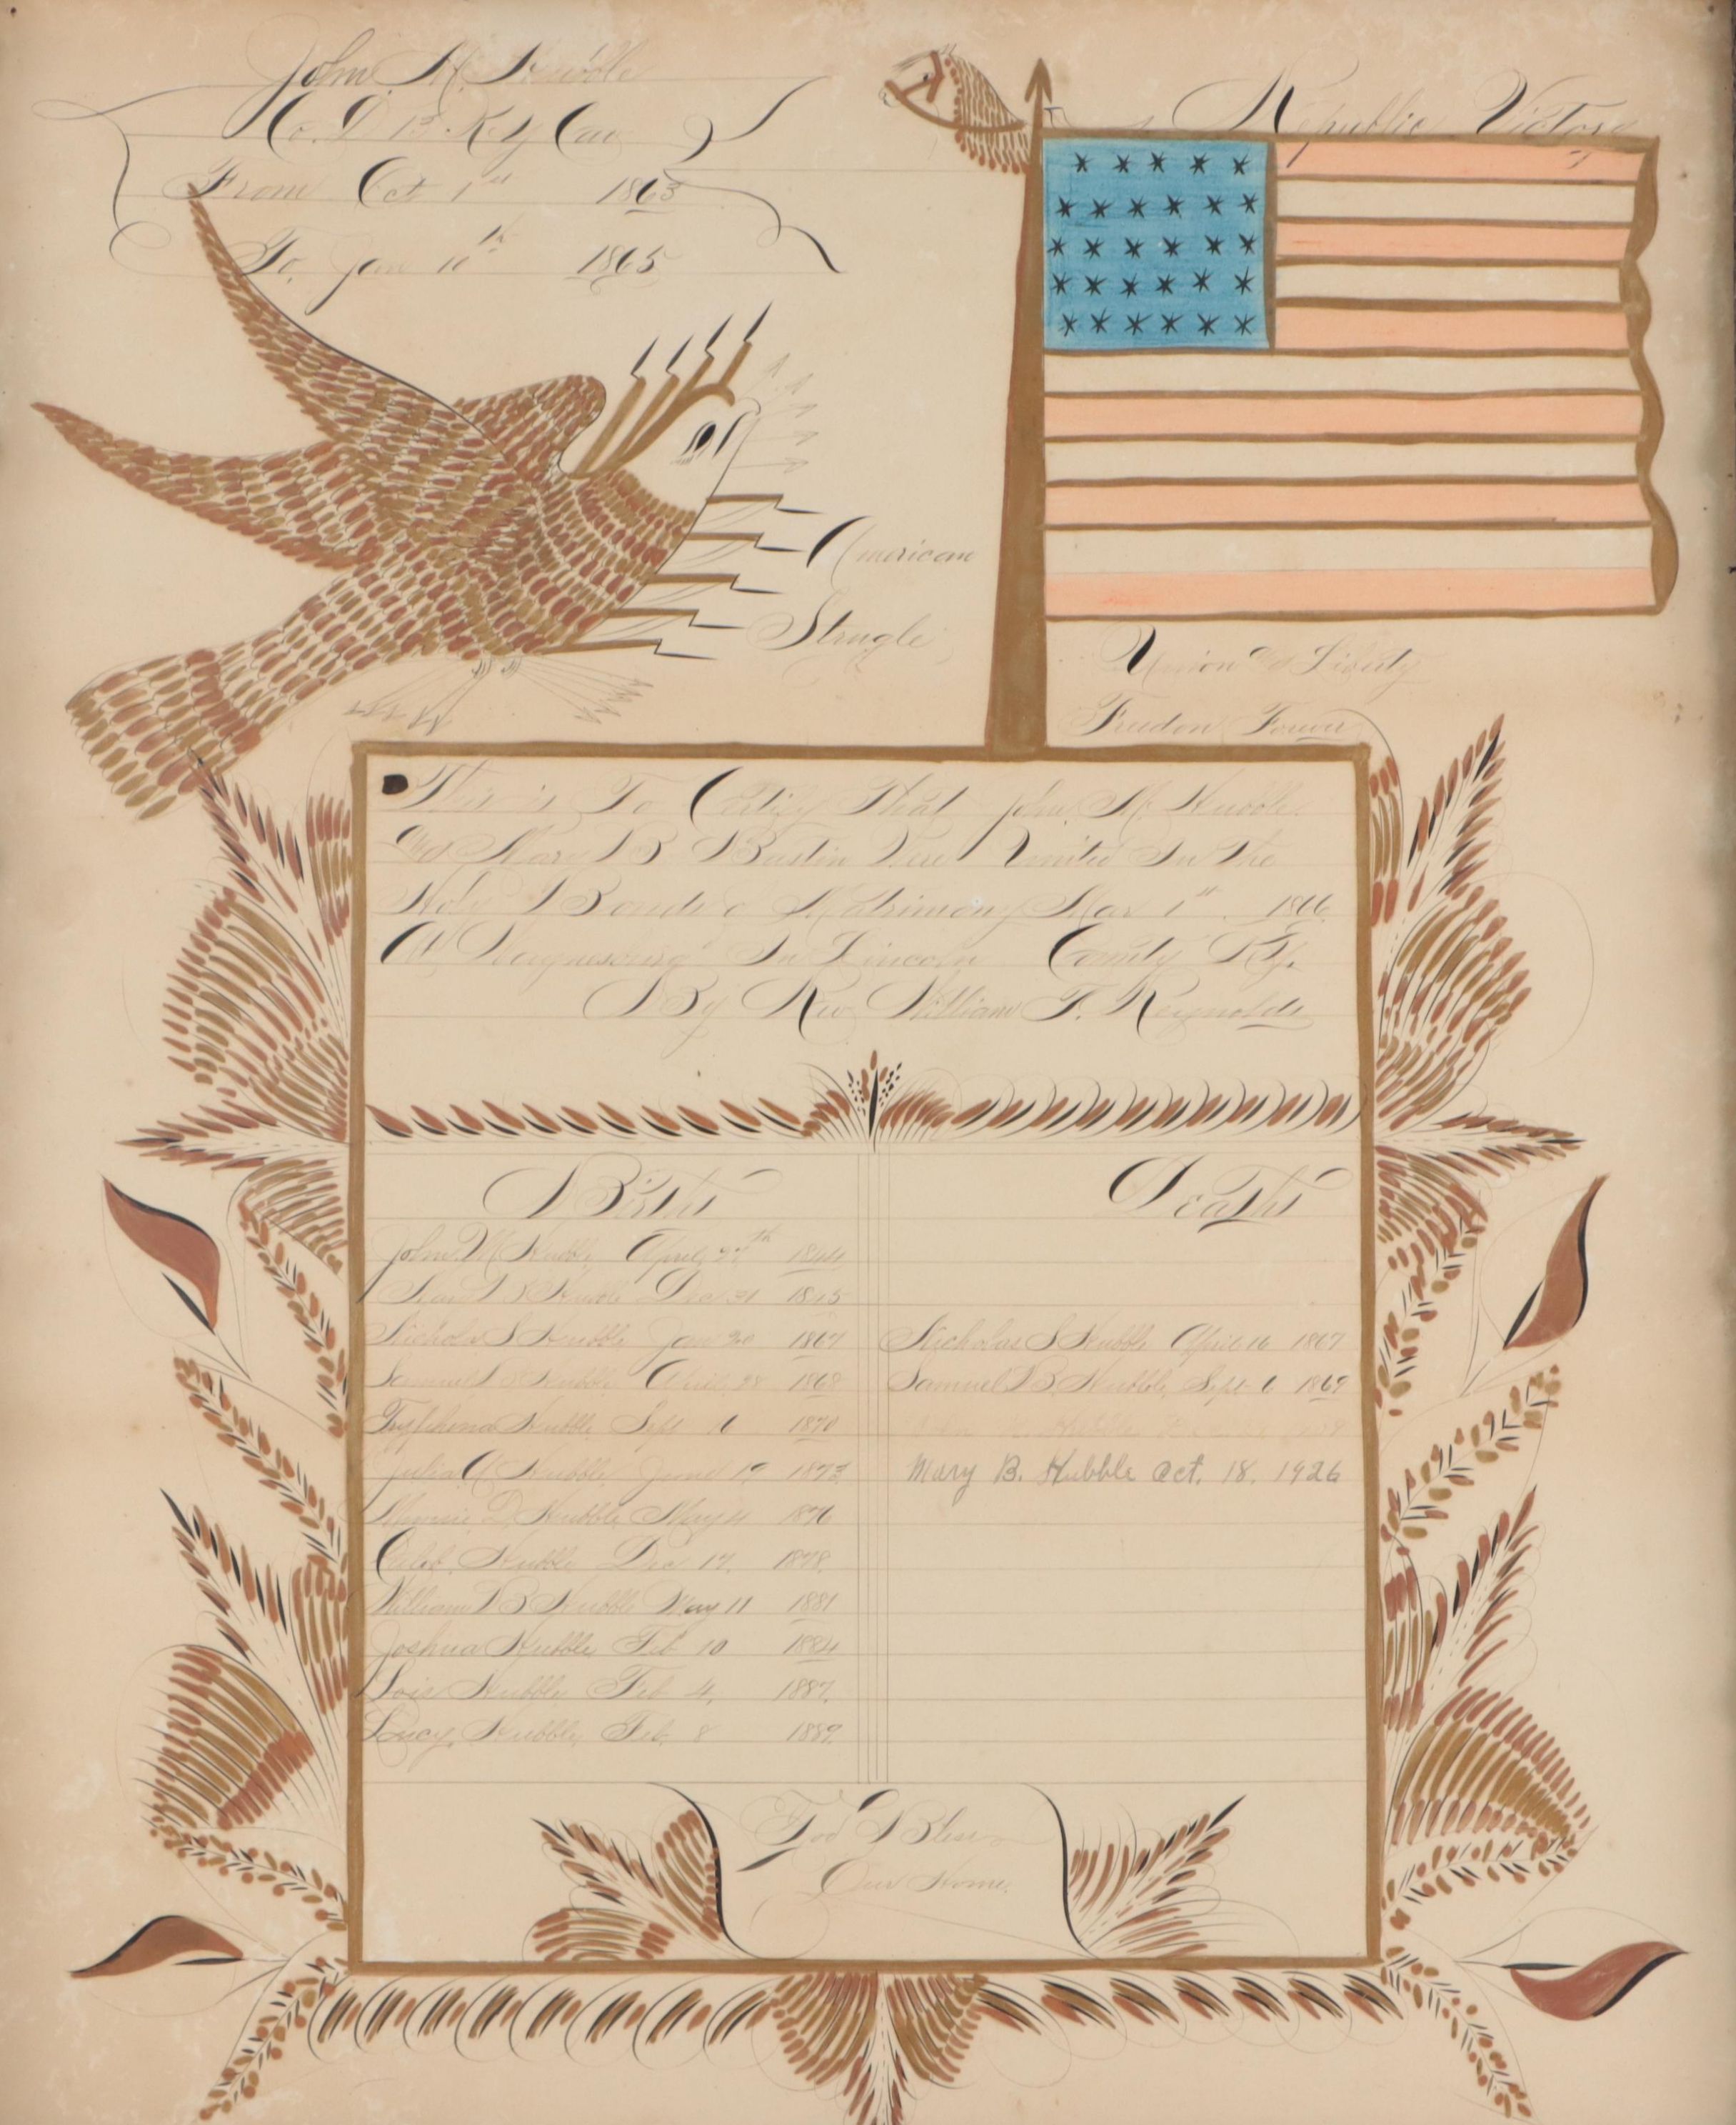 John M. Hubble
Co. D 13 Ky Cav
From Oct 1st 1863
To Jan 10th 1865
Republic Victory
American
Strugle
Union And Liberty
Freedon Forever
This is To Certify That John M. Hubble
And Mary B Bastin Were United In The
Holy Bonds of Matrimony Mar 1st 1866
At In Lincoln County Ky.
By Rev William F. Reynolds
Births
Deaths
John M Hubble April 1844
Mary B Hubble Dec 21 1845
Nicholas S Hubble Jan 20 1867
Nicholas S Hubble April 16 1867
Samuel B Hubble April 28 1868
Samuel B Hubble Sept 6 1869
Hubble Sept 6 1870
Julia A Hubble June 19 1873
Mary B. Hubble Oct. 18, 1926
Minnie D Hubble May 4 1876
Caleb Hubble Dec 17, 1878
William B Hubble May 11 1881
Joshua Hubble Feb 10 1884
Lois Hubble Feb 4, 1887
Lucy Hubble Feb 8 1889
God Bless
Our Home